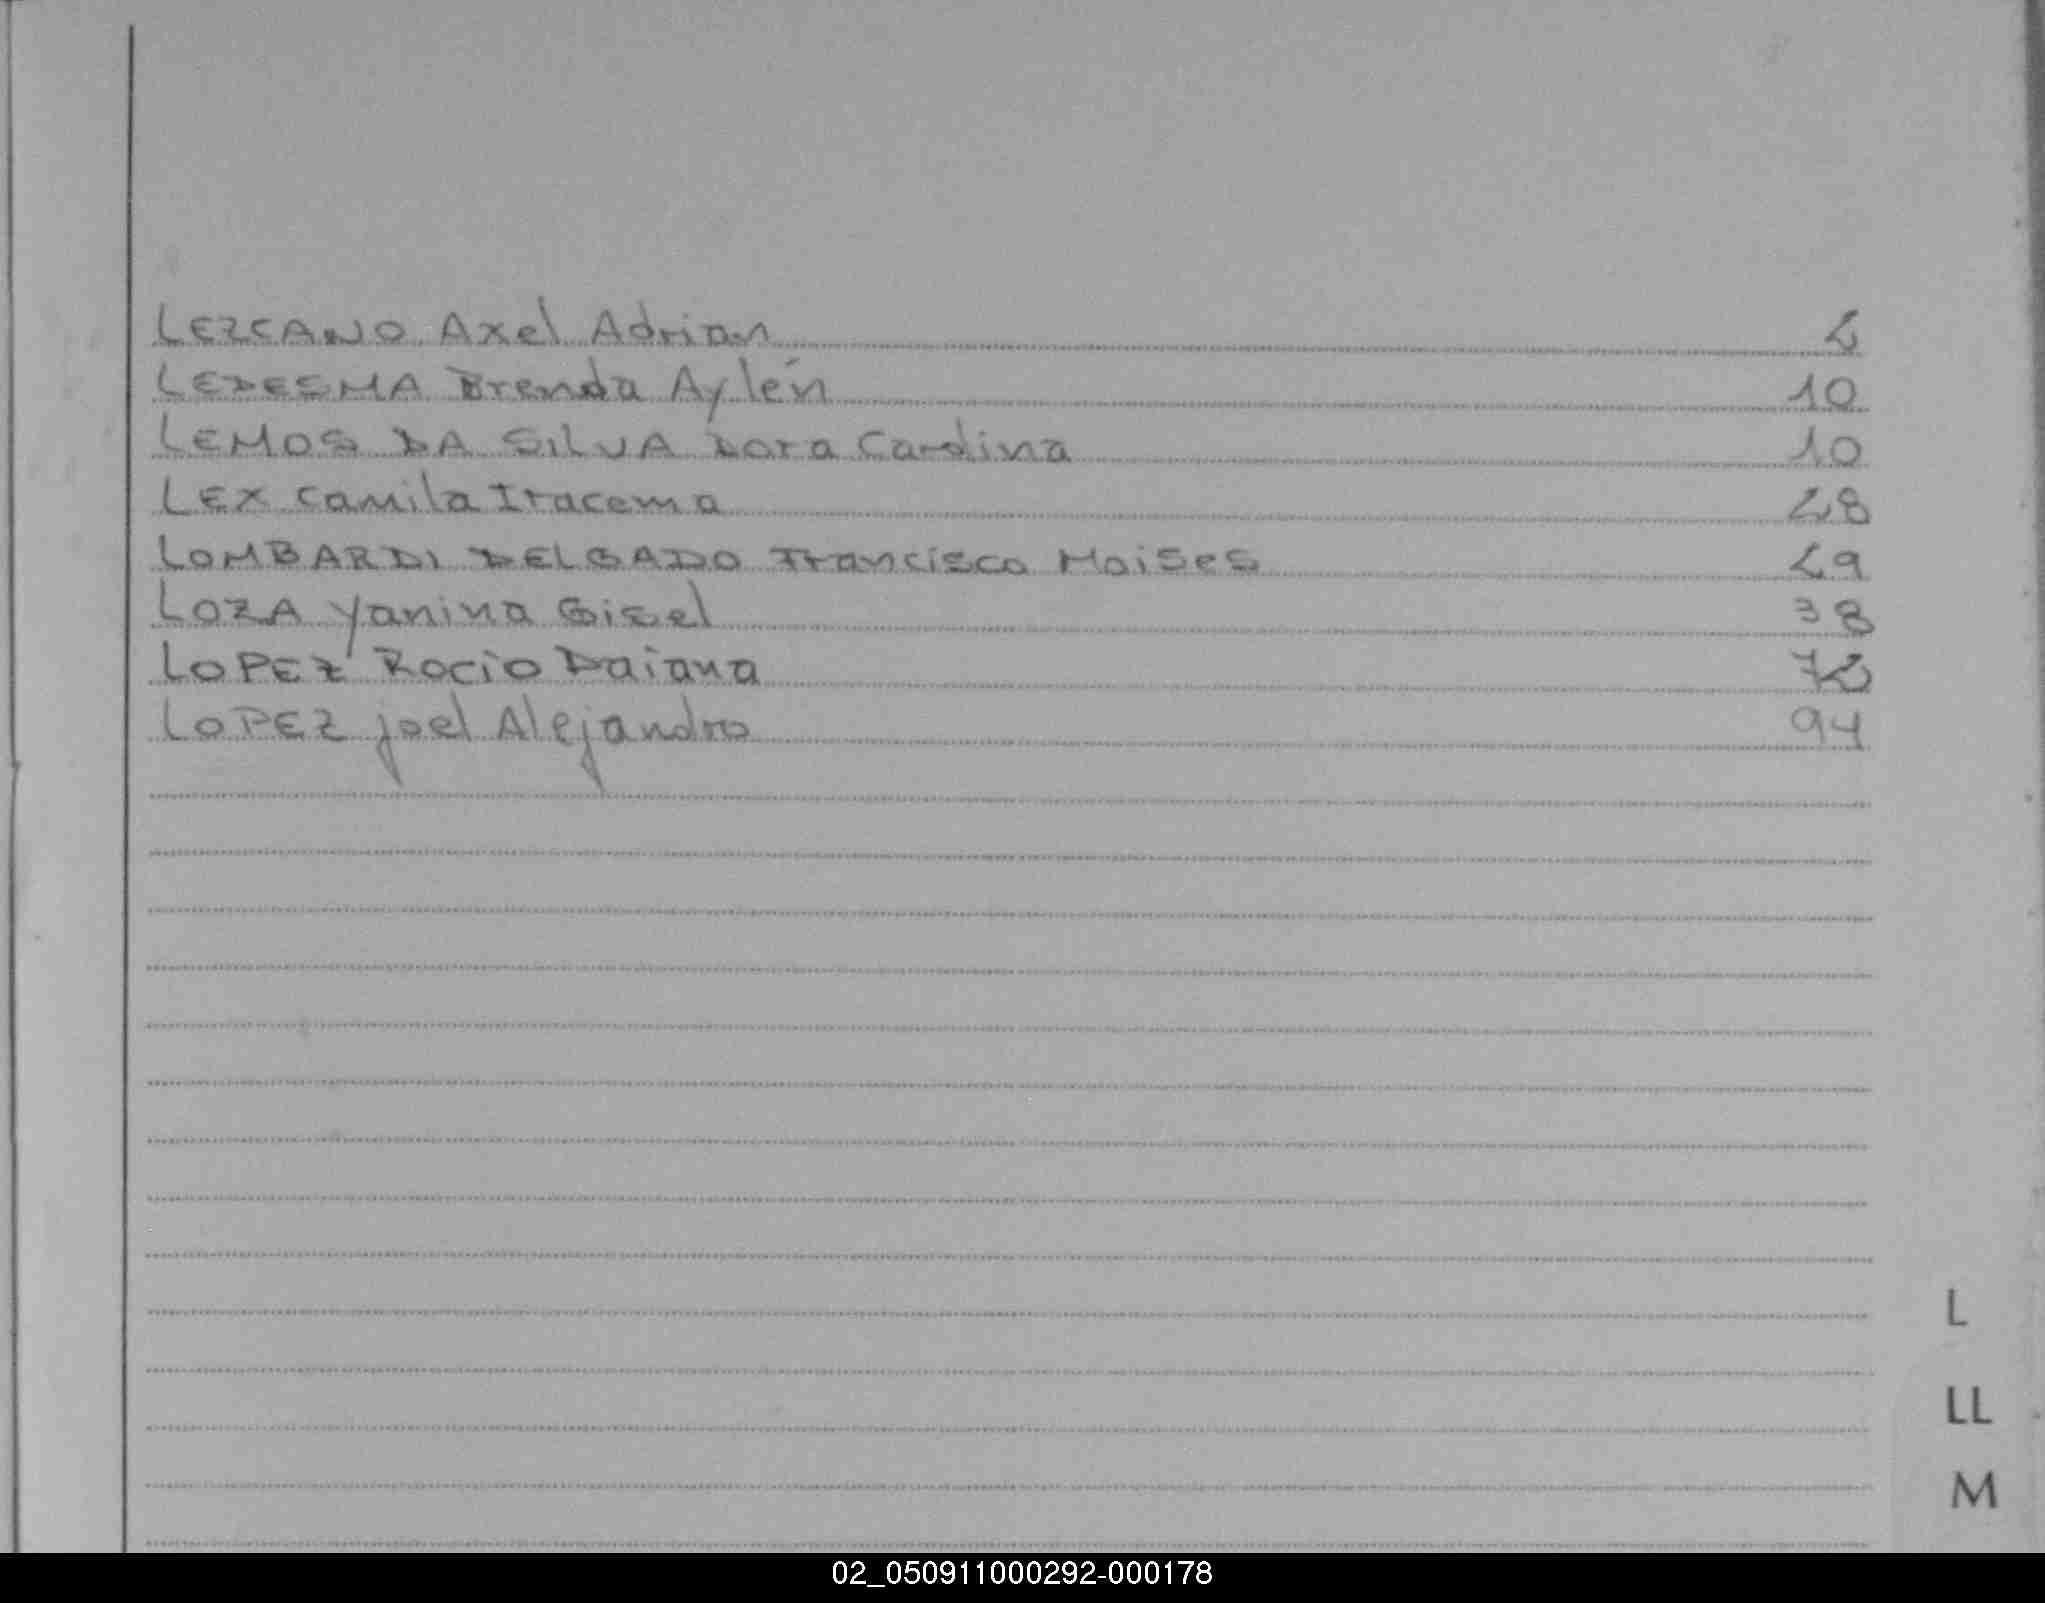 LEZCANO Axel Adrian 2
LEDESMA Brenda Aylén 10
LEMOS DA SILVA Dora Cardina 10
LEX Camila Iracema 28
LOMBARDI DELGADO Francisco Moises 29
LOZA Yanina Gisel 38
LOPEZ Rocio Daiana 72
LOPEZ Joel Alejandro 94
L
LL
M
02_050911000292-000178